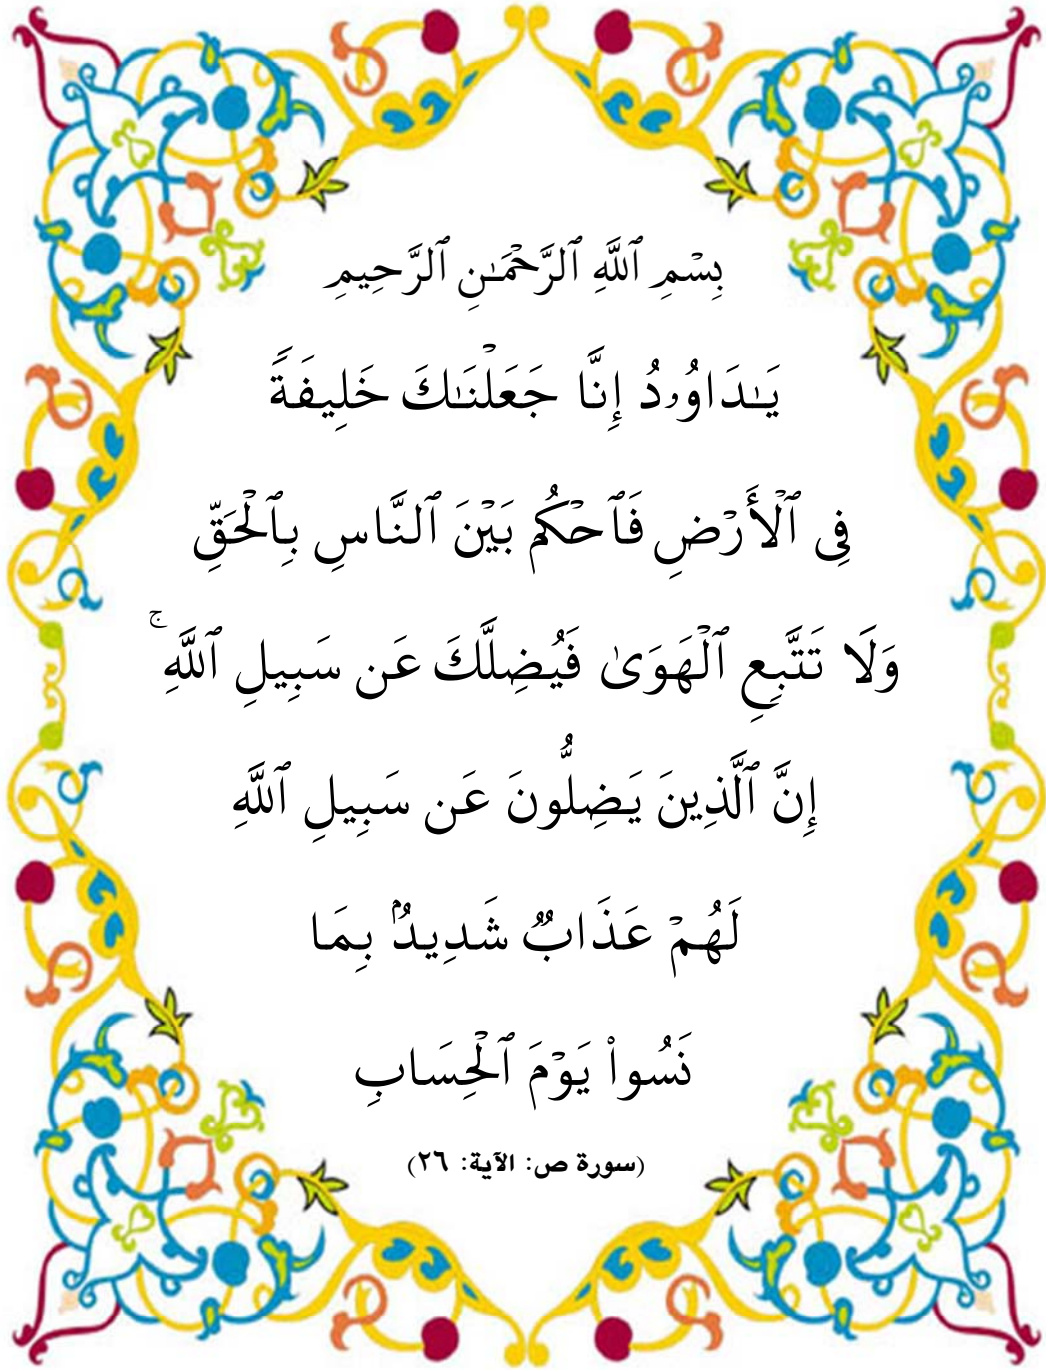 بِسۡمِ ٱللَّهِ ٱلرَّحۡمَٰنِ ٱلرَّحِيمِ
يَٰدَاوُۥدُ إِنَّا جَعَلۡنَٰكَ خَلِيفَةٗ
فِي ٱلۡأَرۡضِ فَٱحۡكُم بَيۡنَ ٱلنَّاسِ بِٱلۡحَقِّ
وَلَا تَتَّبِعِ ٱلۡهَوَىٰ فَيُضِلَّكَ عَن سَبِيلِ ٱللَّهِۚ
إِنَّ ٱلَّذِينَ يَضِلُّونَ عَن سَبِيلِ ٱللَّهِ
لَهُمۡ عَذَابٞ شَدِيدُۢ بِمَا
نَسُواْ يَوۡمَ ٱلۡحِسَابِ
(سورة ص: الآية: ٢٦)